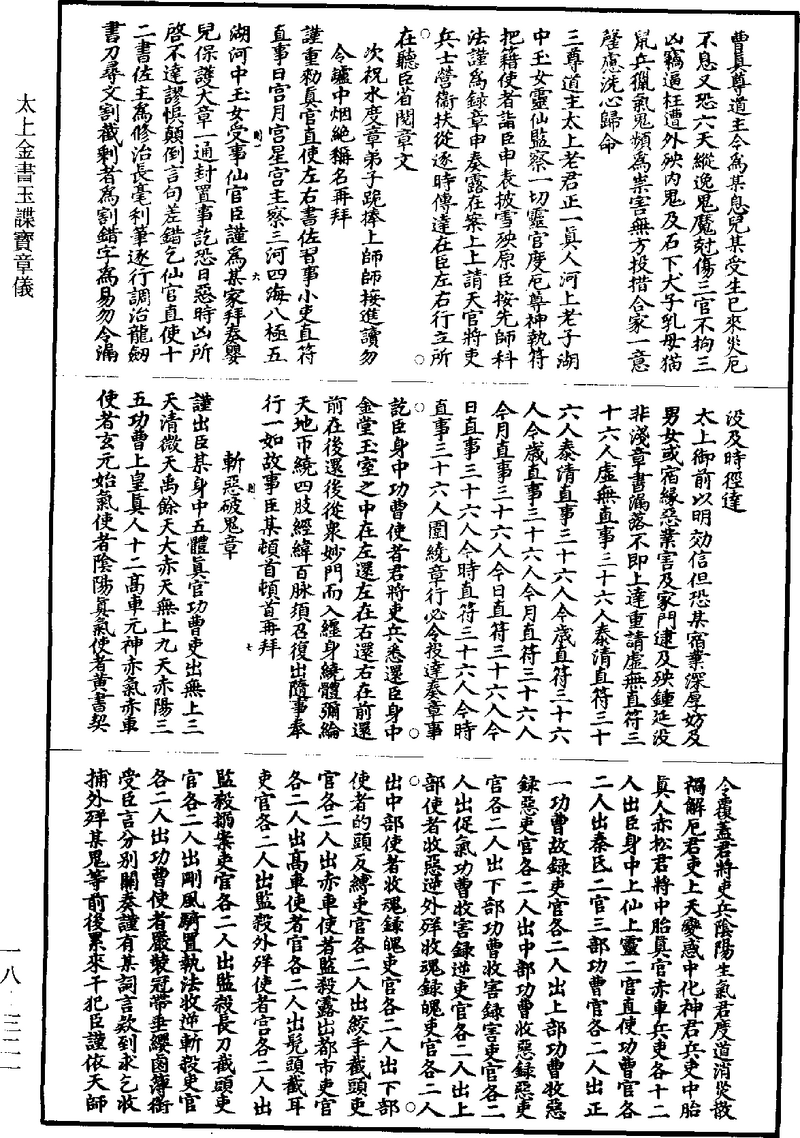 太上金書玉諜寶章儀
曹真尊道主令為某息兒某受生已來災厄
不息又恐六天縱逸鬼魔尅傷三官不拘三
凶竊逼枉遭外殃内鬼及石下犬子乳母猫
鼠兵獵氣鬼頻為祟害無方投措合家一意
罄慮洗心歸命
三尊道主太上老君正一真人河上老子湖
中玉女靈仙監察一切靈官度厄尊神執符
把籍使者詣臣申表披雪殃原臣按先師科
法謹為錄章申奏露在案上上請天官將吏
兵士營衛扶從逐時傳達在臣左右行立所
在聽臣省閱章文
次祝水度章弟子跪捧上師師接進讀勿
令爐中烟絕稱名再拜
謹重勑真官直使左右書佐習事小吏直符
直事日宮月宮星宮主察三河四海八極五
湖河中玉女受事仙官臣謹為某家拜奏嬰
兒保護大章一通封置事訖恐日惡時凶所
啓不達謬悞顛倒言句差錯乞仙官直使十
二書佐主為修治長毫利筆逐行調治龍劒
書刀尋文割截剩者為割錯字為易勿令漏
没及時徑達
太上御前以明効信但恐某宿業深厚妨及
男女或宿緣惡業害及家門逮及殃鍾延没
非淺章書漏落不即上達重請虛無直符三
十六人虛無直事三十六人泰清直符三十
六人泰清直事三十六人今歲直符三十六
人今歲直事三十六人今月直符三十六人
今月直事三十六人今日直符三十六人今
日直事三十六人今時直符三十六人今時
直事三十六人圍繞章行必令投達奏章事
訖臣身中功曹使者君將吏兵悉還臣身中
金堂玉室之中在左還左在右還右在前還
前在後還後從衆妙門而入纏身繞體彌綸
天地帀繞四肢經緯百脉須召復出隨事奉
行一如故事臣某頓首頓首再拜
斬惡破鬼章
謹出臣某身中五體真官功曹吏出無上三
天清微天禹餘天大赤天無上九天赤陽三
五功曹上皇真人十二高車元神赤氣赤車
使者玄元始氣使者陰陽真氣使者黄書契
令覆蓋君將吏兵陰陽生氣君度道消災散
禍解厄君吏上天變惑中化神君兵吏中胎
真人赤松君將中胎真官赤車兵吏各十二
人出臣身中上仙上靈二官直使功曹官各
二人出秦氏二官三部功曹官各二人出正
一功曹故錄吏官各二人出上部功曹收惡
錄惡吏官各二人出中部功曹收惡錄惡吏
官各二人出下部功曹收害錄害吏官各二
人出促氣功曹收害錄逆吏官各二人出上
部使者收惡逆外殍收魂錄魄吏官各二人
出中部使者收魂錄魄吏官各二人出下部
使者的頭反縛吏官各二人出絞手截頭吏
官各二人出赤車使者監殺露出都市吏官
各二人出高車使者官各二人出髡頭截耳
吏官各二人出監殺外殍使者宫各二人出
監殺搦案吏官各二人出監殺長刀截頭吏
官各二人出剛風騎置執法收逆斬殺吏官
各二人出功曹使者嚴裝冠帶垂纓鹵簿銜
受臣言分別關奏謹有某詞言欵到求乞收
捕外殍某鬼等前後累來干犯臣謹依天師
一八·三二一